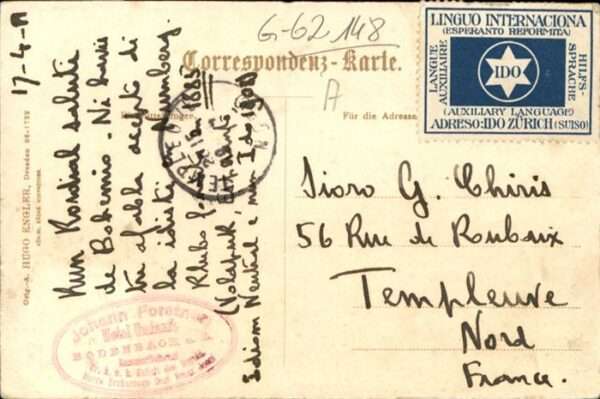 G-62 148
A
17-4-11
Correspondenz-Karte.
Für die Adresse
LINGUO INTERNACIONA
(ESPERANTO REFORMITA)
LANGUE AUXILIAIRE
IDO
HILFS-SPRACHE
(AUXILIARY LANGUAGE)
ADRESO: IDO ZÜRICH (SUISO)
Kun Kordial saluti
de Bohemio - Ni havis
tre afabla acepto di
la idisti en Nurnberg.
Klubo 1885
(Volapuk)
Idiom Neutral e nun Ido
Sioro G. Chiris
56 Rue de Roubaix
Templeuve
Nord
France.
Johann Forstner
Hotel
BODENBACH a. E.
Orig.-A. HUGO ENGLER, Dresden